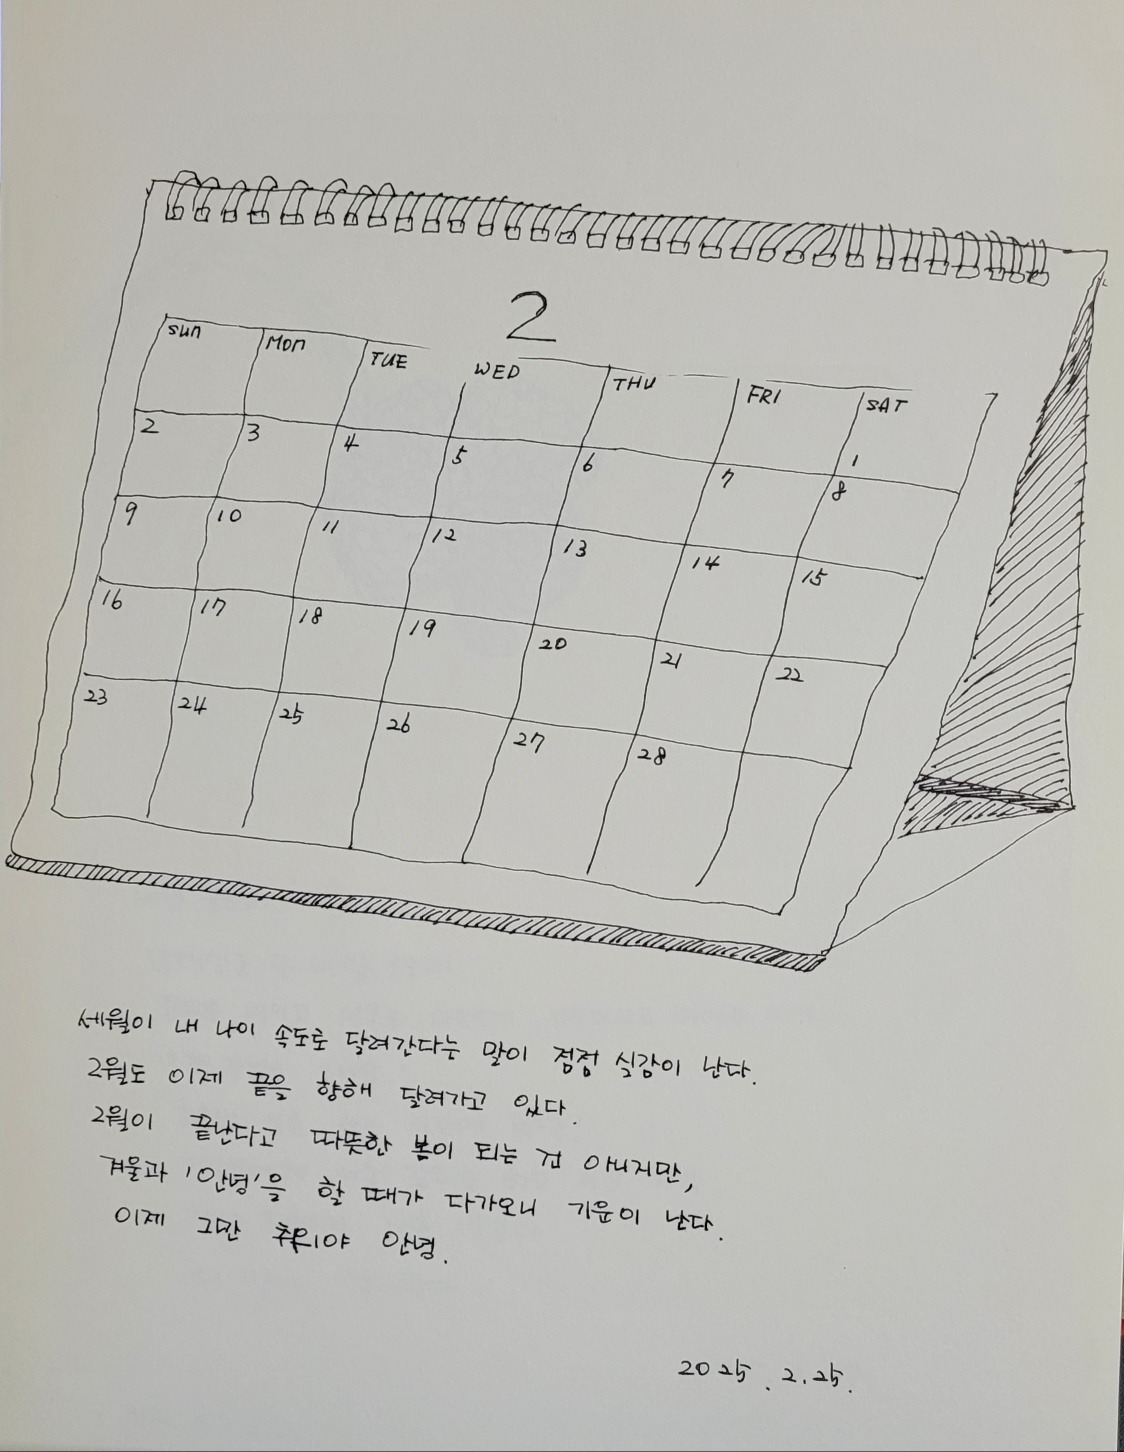 2
SUN MON TUE WED THU FRI SAT
1
2 3 4 5 6 7 8
9 10 11 12 13 14 15
16 17 18 19 20 21 22
23 24 25 26 27 28
세월이 내 나이 속도로 달려간다는 말이 점점 실감이 난다.
2월도 이제 끝을 향해 달려가고 있다.
2월이 끝난다고 따뜻한 봄이 되는 건 아니지만,
겨울과 '안녕'을 할 때가 다가오니 기운이 난다.
이제 그만 추위야 안녕.
2025.2.25.